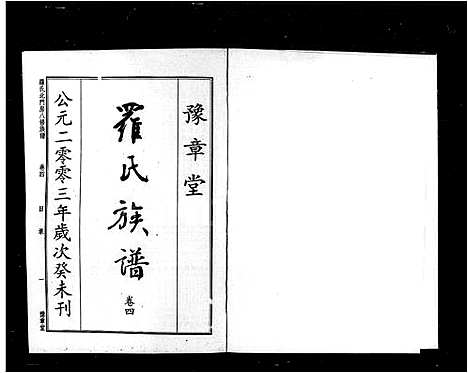 豫章堂
羅氏族譜
卷四
公元二零零三年歲次癸未刊
羅氏北門房八修族譜
卷四
目錄
一
豫章堂